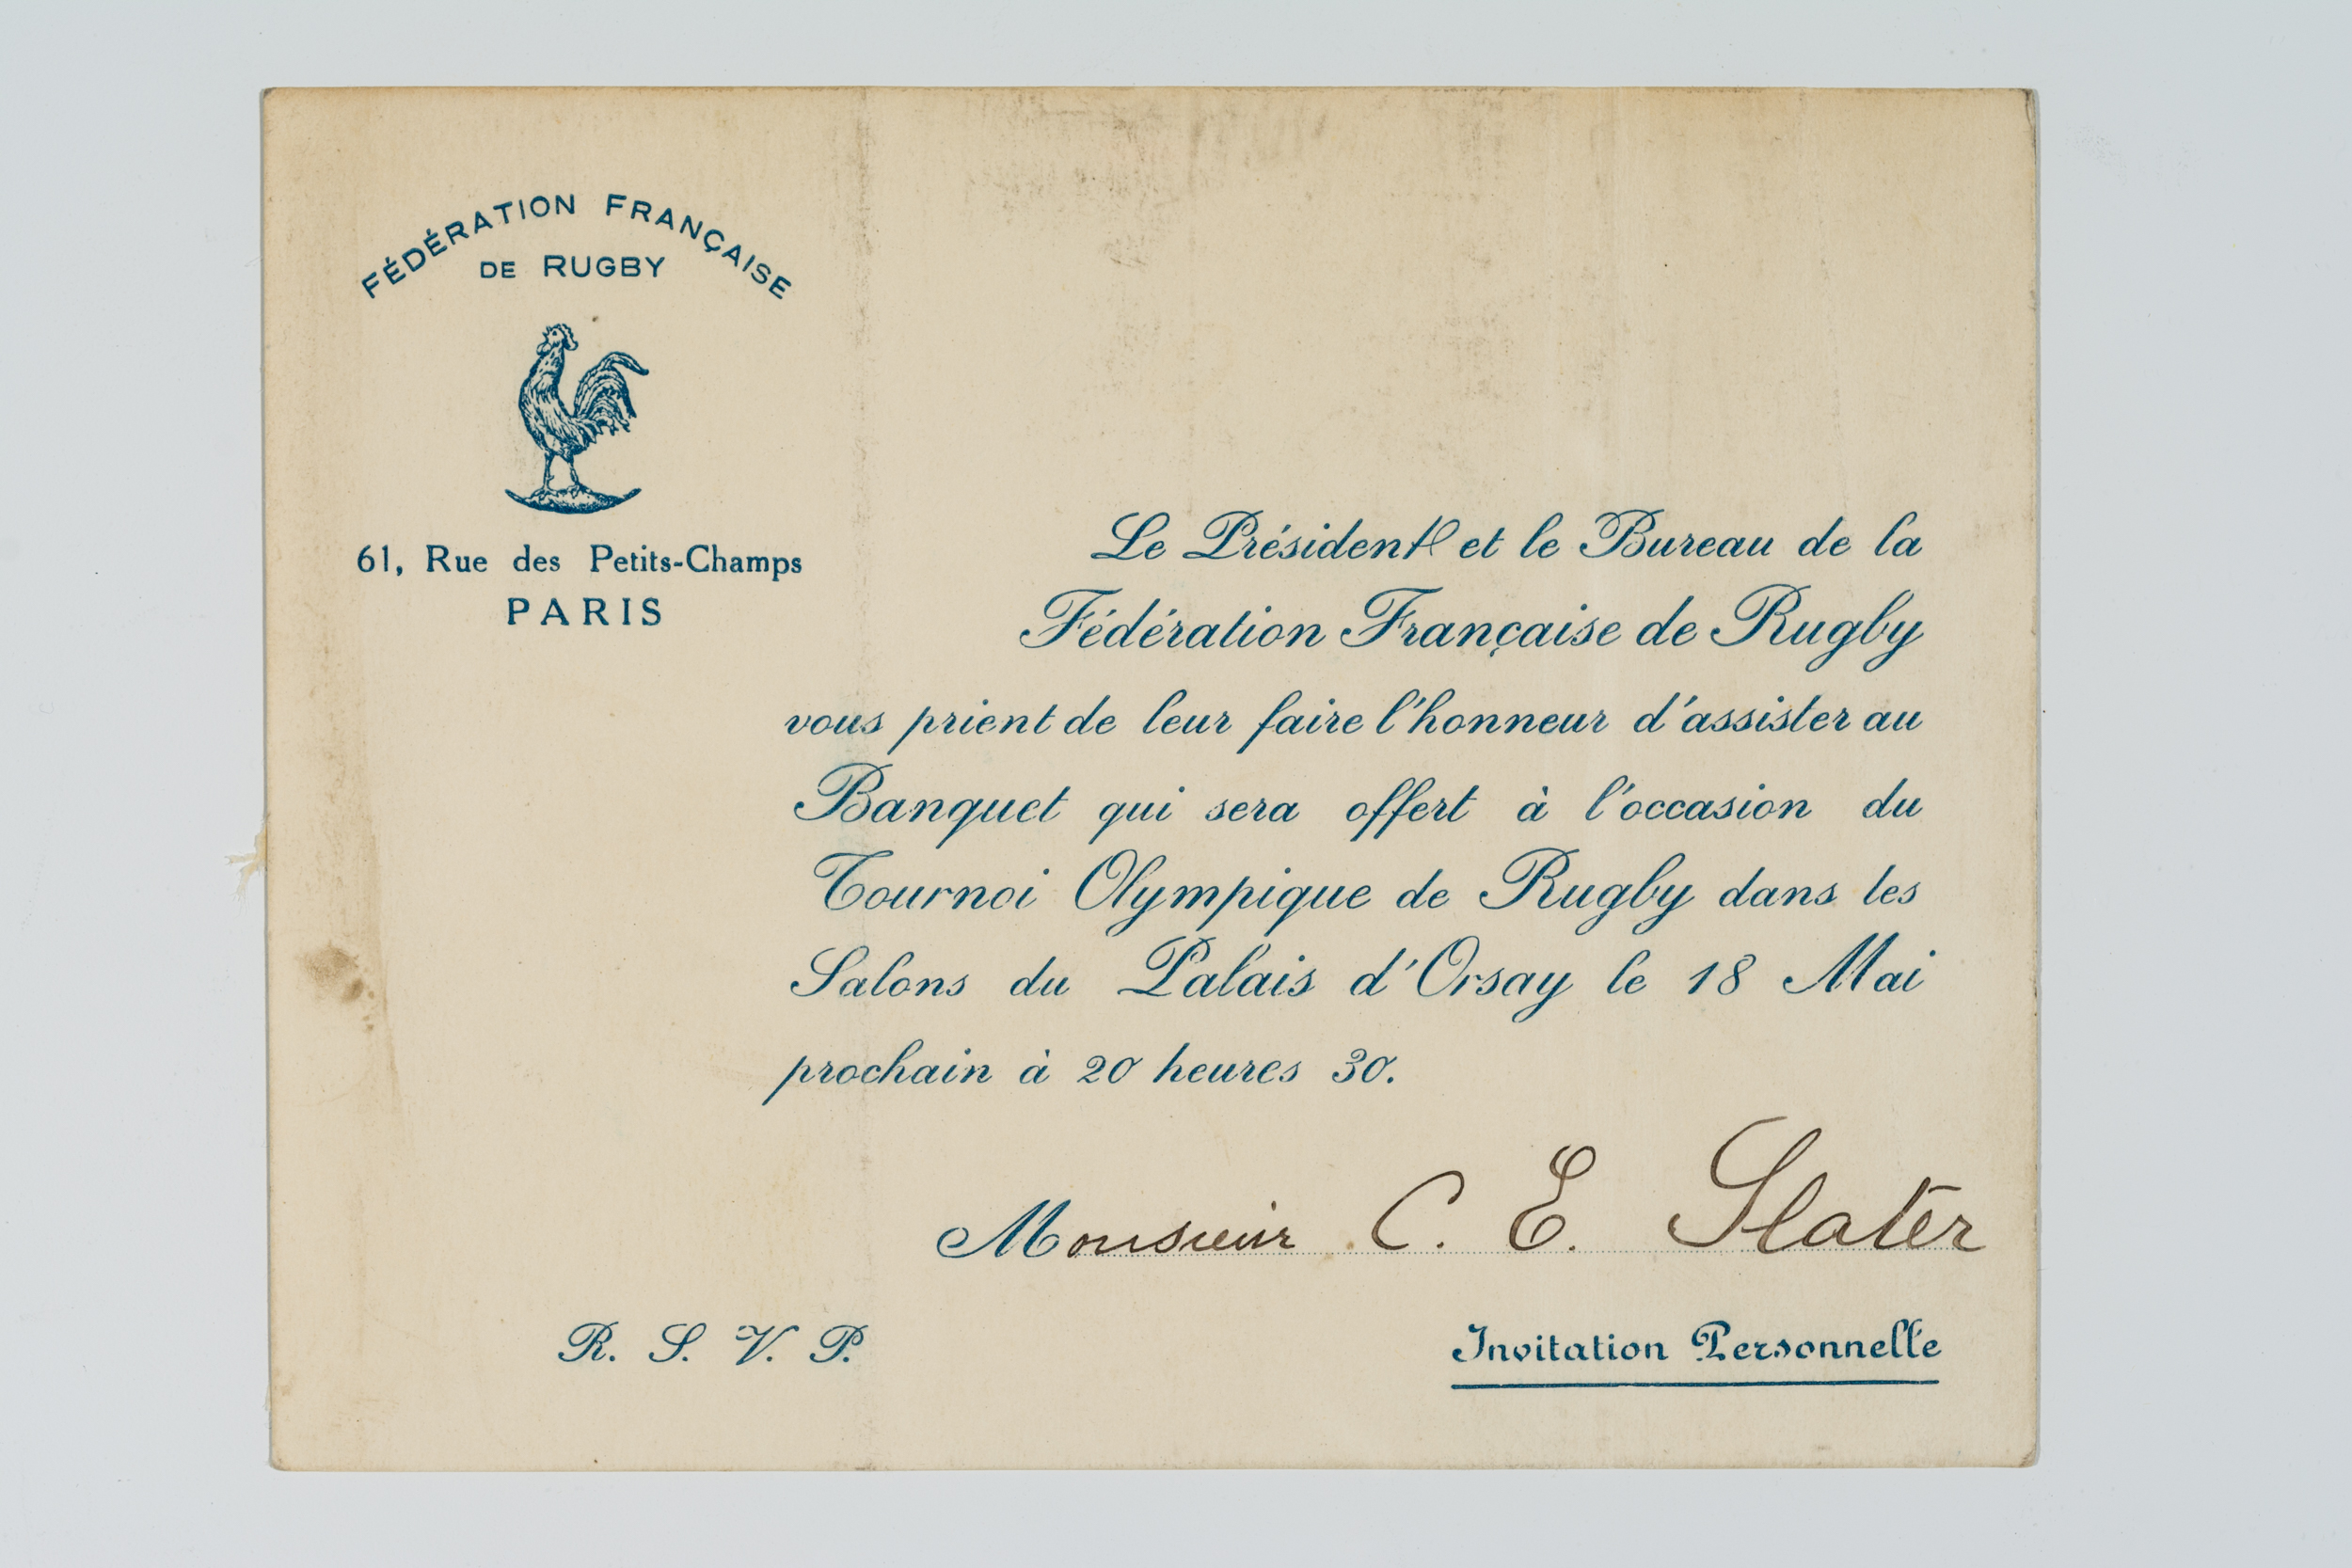 FÉDÉRATION FRANÇAISE
DE RUGBY
61, Rue des Petits-Champs
PARIS
Le Président et le Bureau de la
Fédération Française de Rugby
vous prient de leur faire l'honneur d'assister au
Banquet qui sera offert à l'occasion du
Tournoi Olympique de Rugby dans les
Salons du Palais d'Orsay le 18 Mai
prochain à 20 heures 30.
Monsieur C. E. Slater
R. S. V. P.
Invitation Personnelle